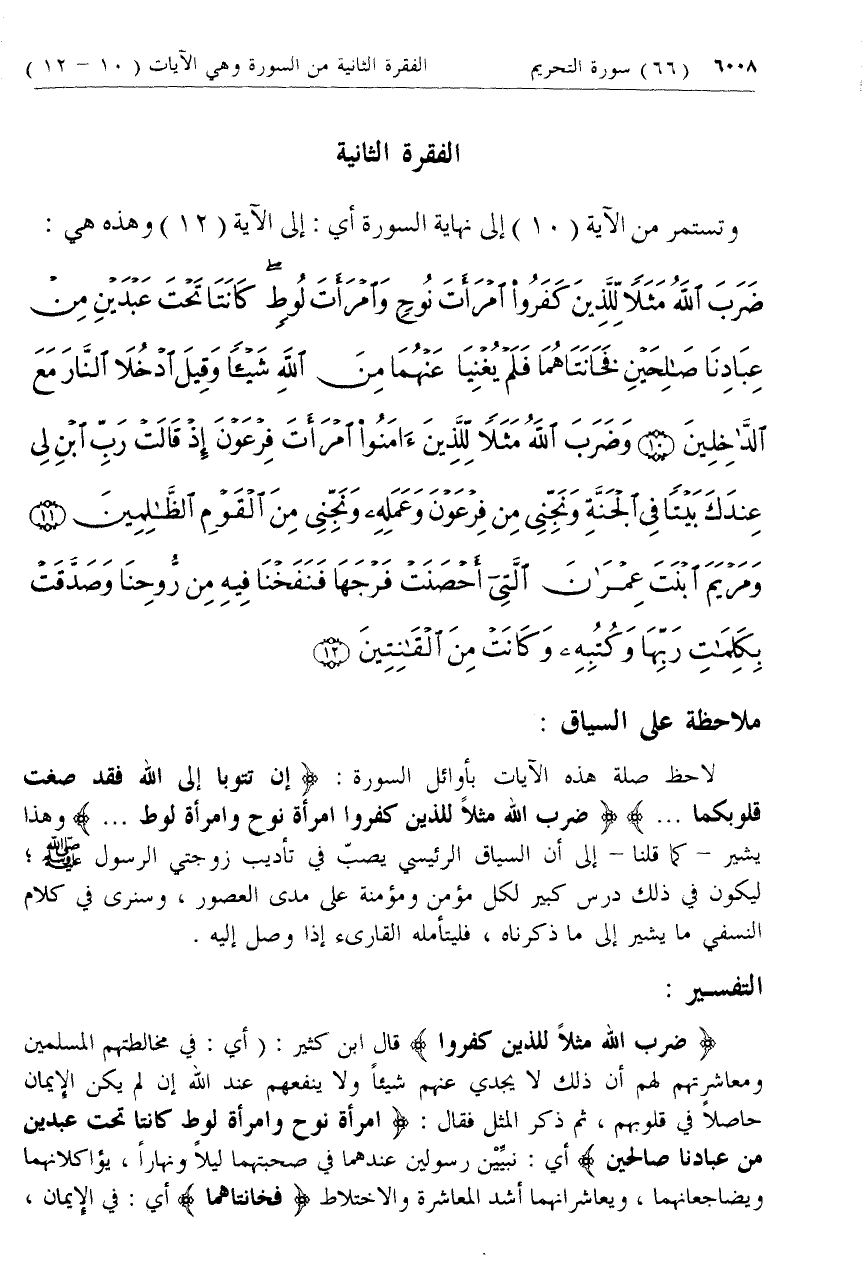 ٦٠٠٨ (٦٦) سورة التحريم الفقرة الثانية من السورة وهي الآيات ( ١٠ – ١٢ )
الفقرة الثانية
وتستمر من الآية ( ١٠ ) إلى نهاية السورة أي : إلى الآية ( ١٢ ) وهذه هي :
ضَرَبَ ٱللَّهُ مَثَلًا لِّلَّذِينَ كَفَرُوا۟ ٱمْرَأَتَ نُوحٍ وَٱمْرَأَتَ لُوطٍ ۖ كَانَتَا تَحْتَ عَبْدَيْنِ مِنْ
عِبَادِنَا صَـٰلِحَيْنِ فَخَانَتَاهُمَا فَلَمْ يُغْنِيَا عَنْهُمَا مِنَ ٱللَّهِ شَيْـًٔا وَقِيلَ ٱدْخُلَا ٱلنَّارَ مَعَ
ٱلدَّٰخِلِينَ ۝١٠ وَضَرَبَ ٱللَّهُ مَثَلًا لِّلَّذِينَ ءَامَنُوا۟ ٱمْرَأَتَ فِرْعَوْنَ إِذْ قَالَتْ رَبِّ ٱبْنِ لِى
عِندَكَ بَيْتًا فِى ٱلْجَنَّةِ وَنَجِّنِى مِن فِرْعَوْنَ وَعَمَلِهِۦ وَنَجِّنِى مِنَ ٱلْقَوْمِ ٱلظَّـٰلِمِينَ ۝١١
وَمَرْيَمَ ٱبْنَتَ عِمْرَٰنَ ٱلَّتِىٓ أَحْصَنَتْ فَرْجَهَا فَنَفَخْنَا فِيهِ مِن رُّوحِنَا وَصَدَّقَتْ
بِكَلِمَـٰتِ رَبِّهَا وَكُتُبِهِۦ وَكَانَتْ مِنَ ٱلْقَـٰنِتِينَ ۝١٢
ملاحظة على السياق :
لاحظ صلة هذه الآيات بأوائل السورة : ﴿ إن تتوبا إلى الله فقد صغت
قلوبكما ... ﴾ ﴿ ضرب الله مثلاً للذين كفروا امرأة نوح وامرأة لوط ... ﴾ وهذا
يشير – كما قلنا – إلى أن السياق الرئيسي يصبّ في تأديب زوجتي الرسول ﷺ ؛
ليكون في ذلك درس كبير لكل مؤمن ومؤمنة على مدى العصور ، وسنرى في كلام
النسفي ما يشير إلى ما ذكرناه ، فليتأمله القارىء إذا وصل إليه .
التفسير :
﴿ ضرب الله مثلاً للذين كفروا ﴾ قال ابن كثير : ( أي : في مخالطتهم المسلمين
ومعاشرتهم لهم أن ذلك لا يجدي عنهم شيئاً ولا ينفعهم عند الله إن لم يكن الإيمان
حاصلاً في قلوبهم ، ثم ذكر المثل فقال : ﴿ امرأة نوح وامرأة لوط كانتا تحت عبدين
من عبادنا صالحين ﴾ أي : نبيَّيْن رسولين عندهما في صحبتهما ليلاً ونهاراً ، يؤاكلانهما
ويضاجعانهما ، ويعاشرانهما أشد المعاشرة والاختلاط ﴿ فخانتاهما ﴾ أي : في الإيمان ،